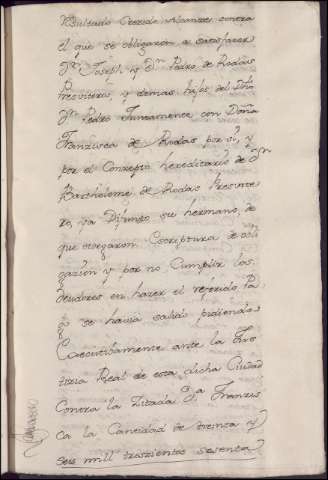 Resultado Crecido Alcanzes contra
el que se obligaron a satisfacer
Dn Joseph y Dn Pedro de Rodas
Presviteros, y demas hijos del Dho
Dn Pedro Juntamente con Doña
Francisca de Rodas por si, y
por el Conzepto hereditario de Dn
Bartholome de Rodas Presvite
ro, ya Difunto su hermano, de
que otorgaron Escriptura de obli
gazion y por no Cumplir los
deudores en hazer el referido Pa
go se havia salido pidiendo
Executibamente ante la Jus
ticia Real de esta dicha Ciudad
Contra la Zitada Da Franzis
ca la Cantidad de treinta y
seis mill trescientos sesenta